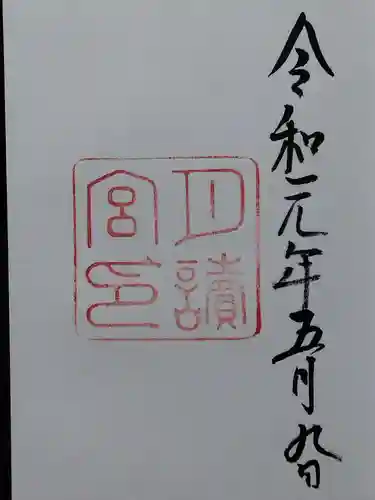 令和元年五月九日
月讀
宮印